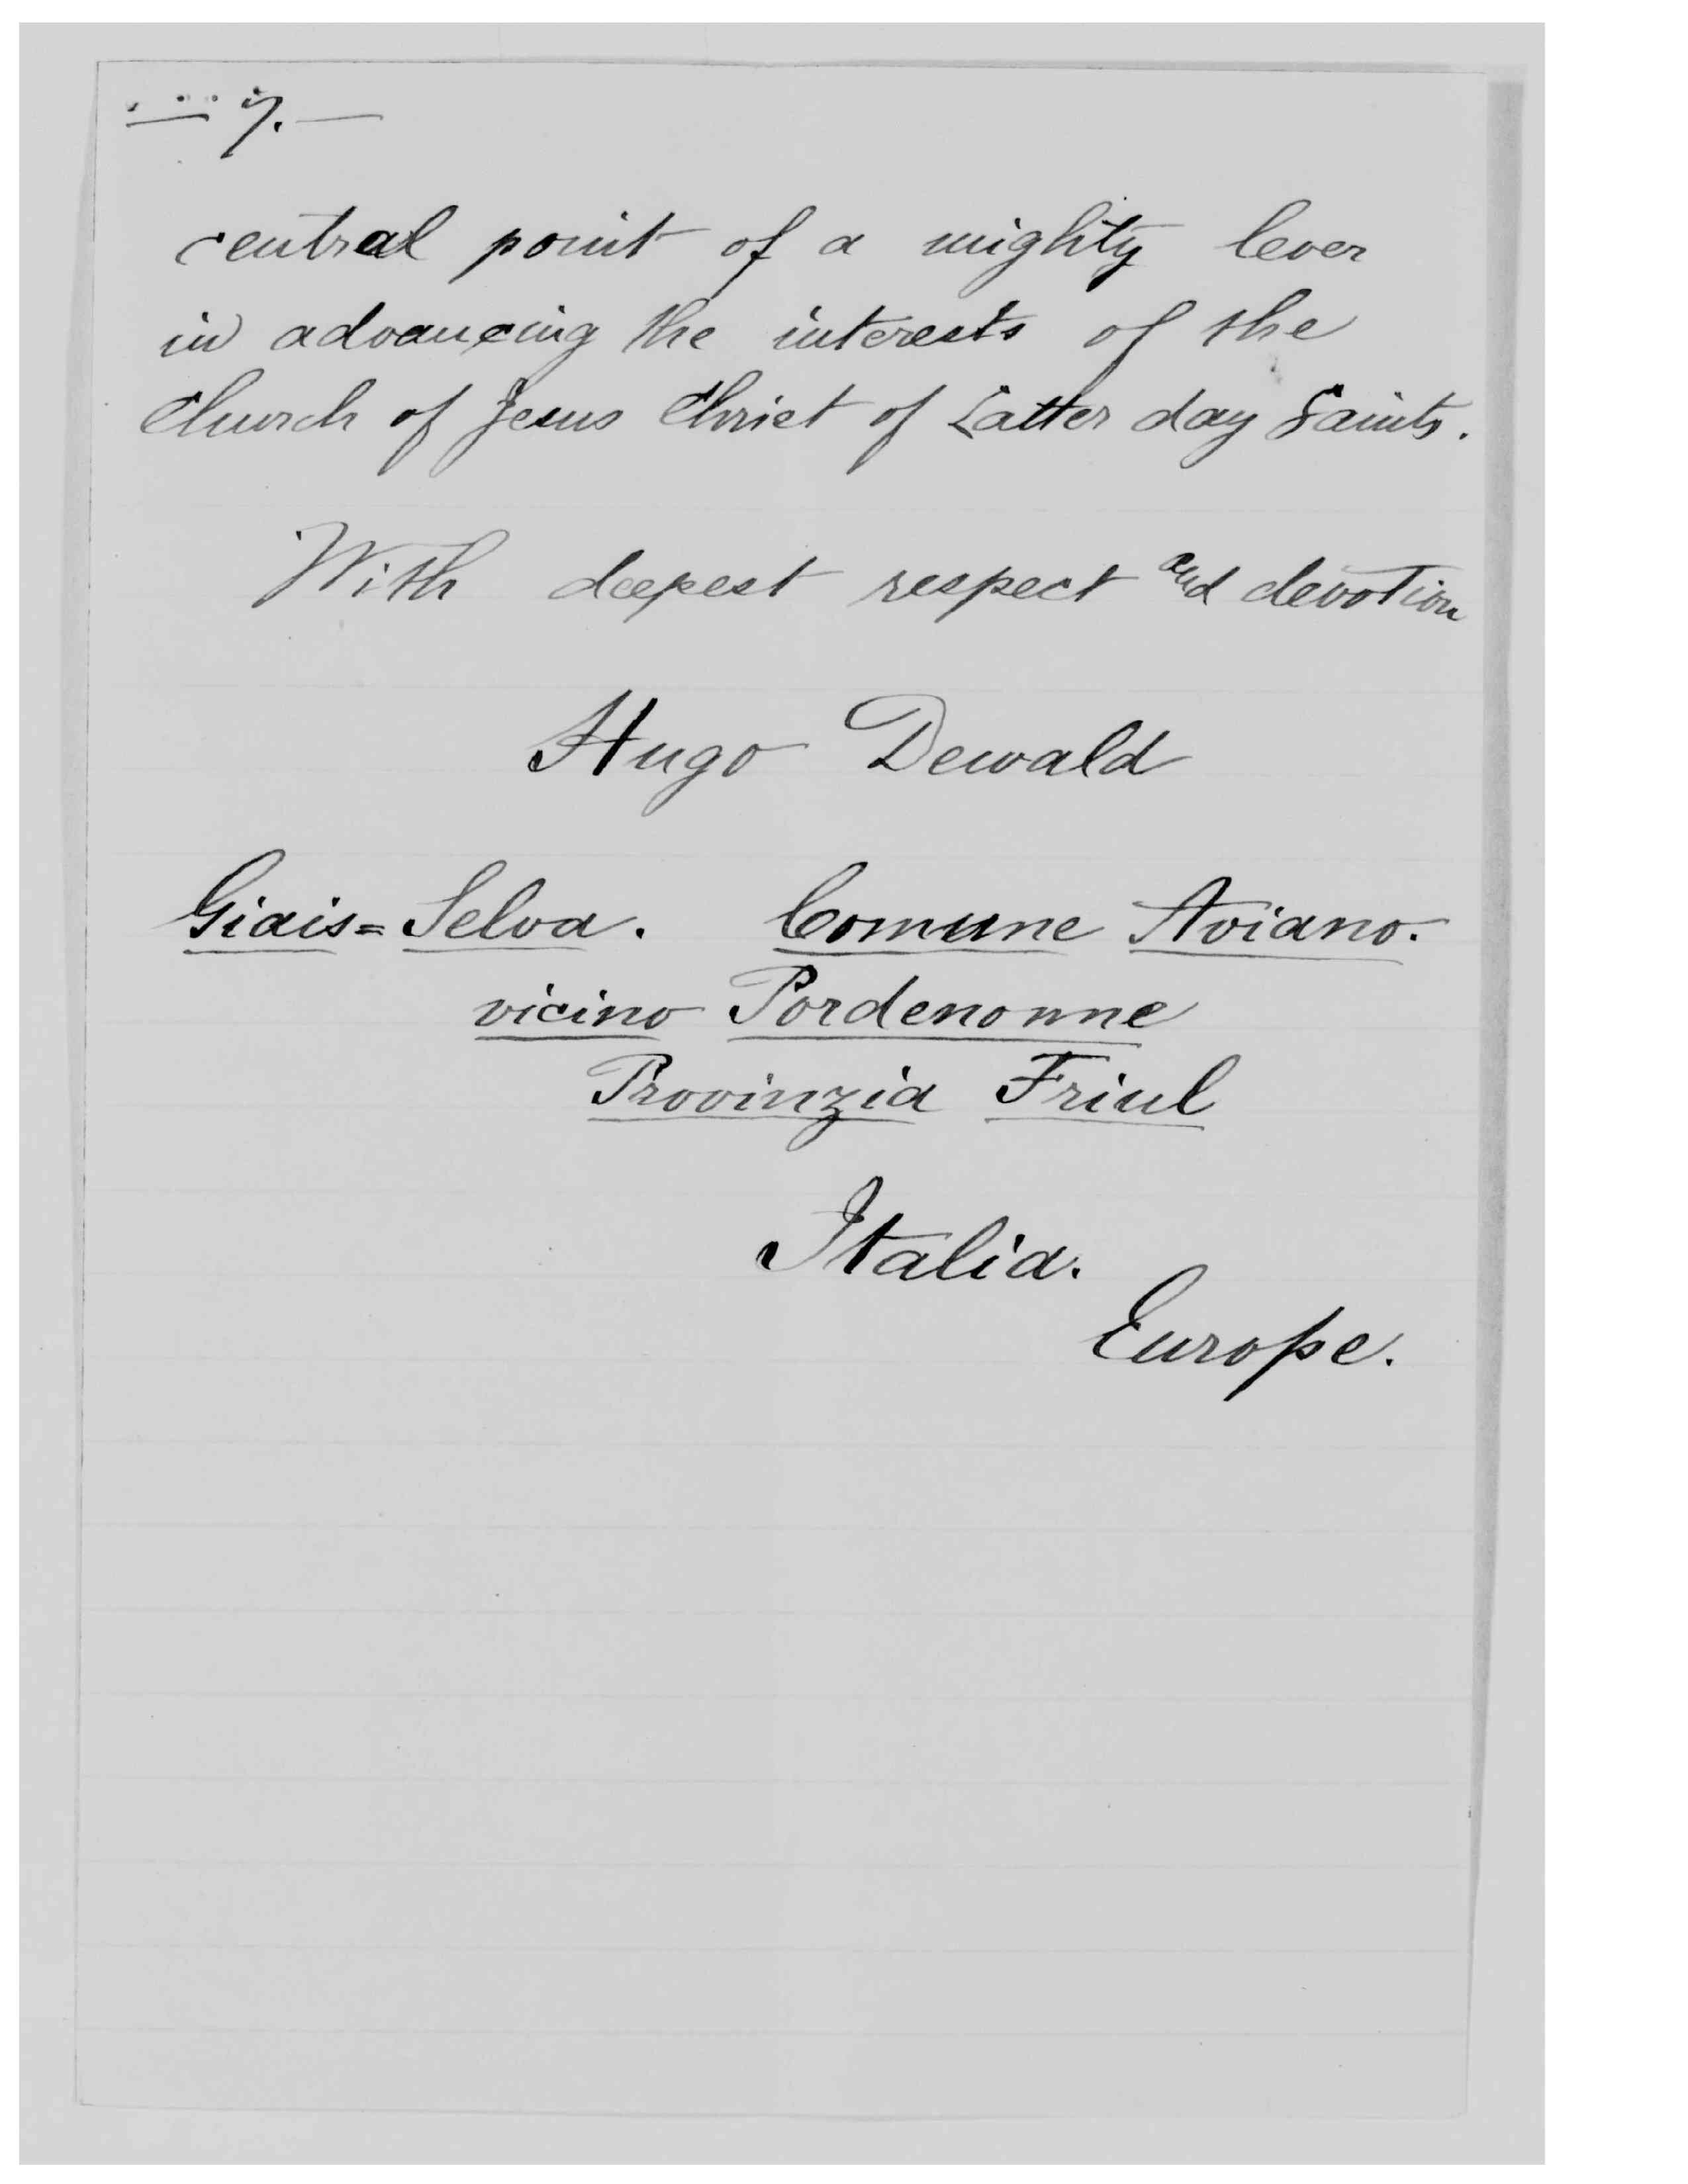 — 7. —
central point of a mighty lever
in advancing the interests of the
Church of Jesus Christ of Latter day Saints.
With deepest respect and devotion
Hugo Dewald
Giais= Selva. Comune Aviano.
vicino Pordenonne
Provinzia Friul
Italia.
Europe.